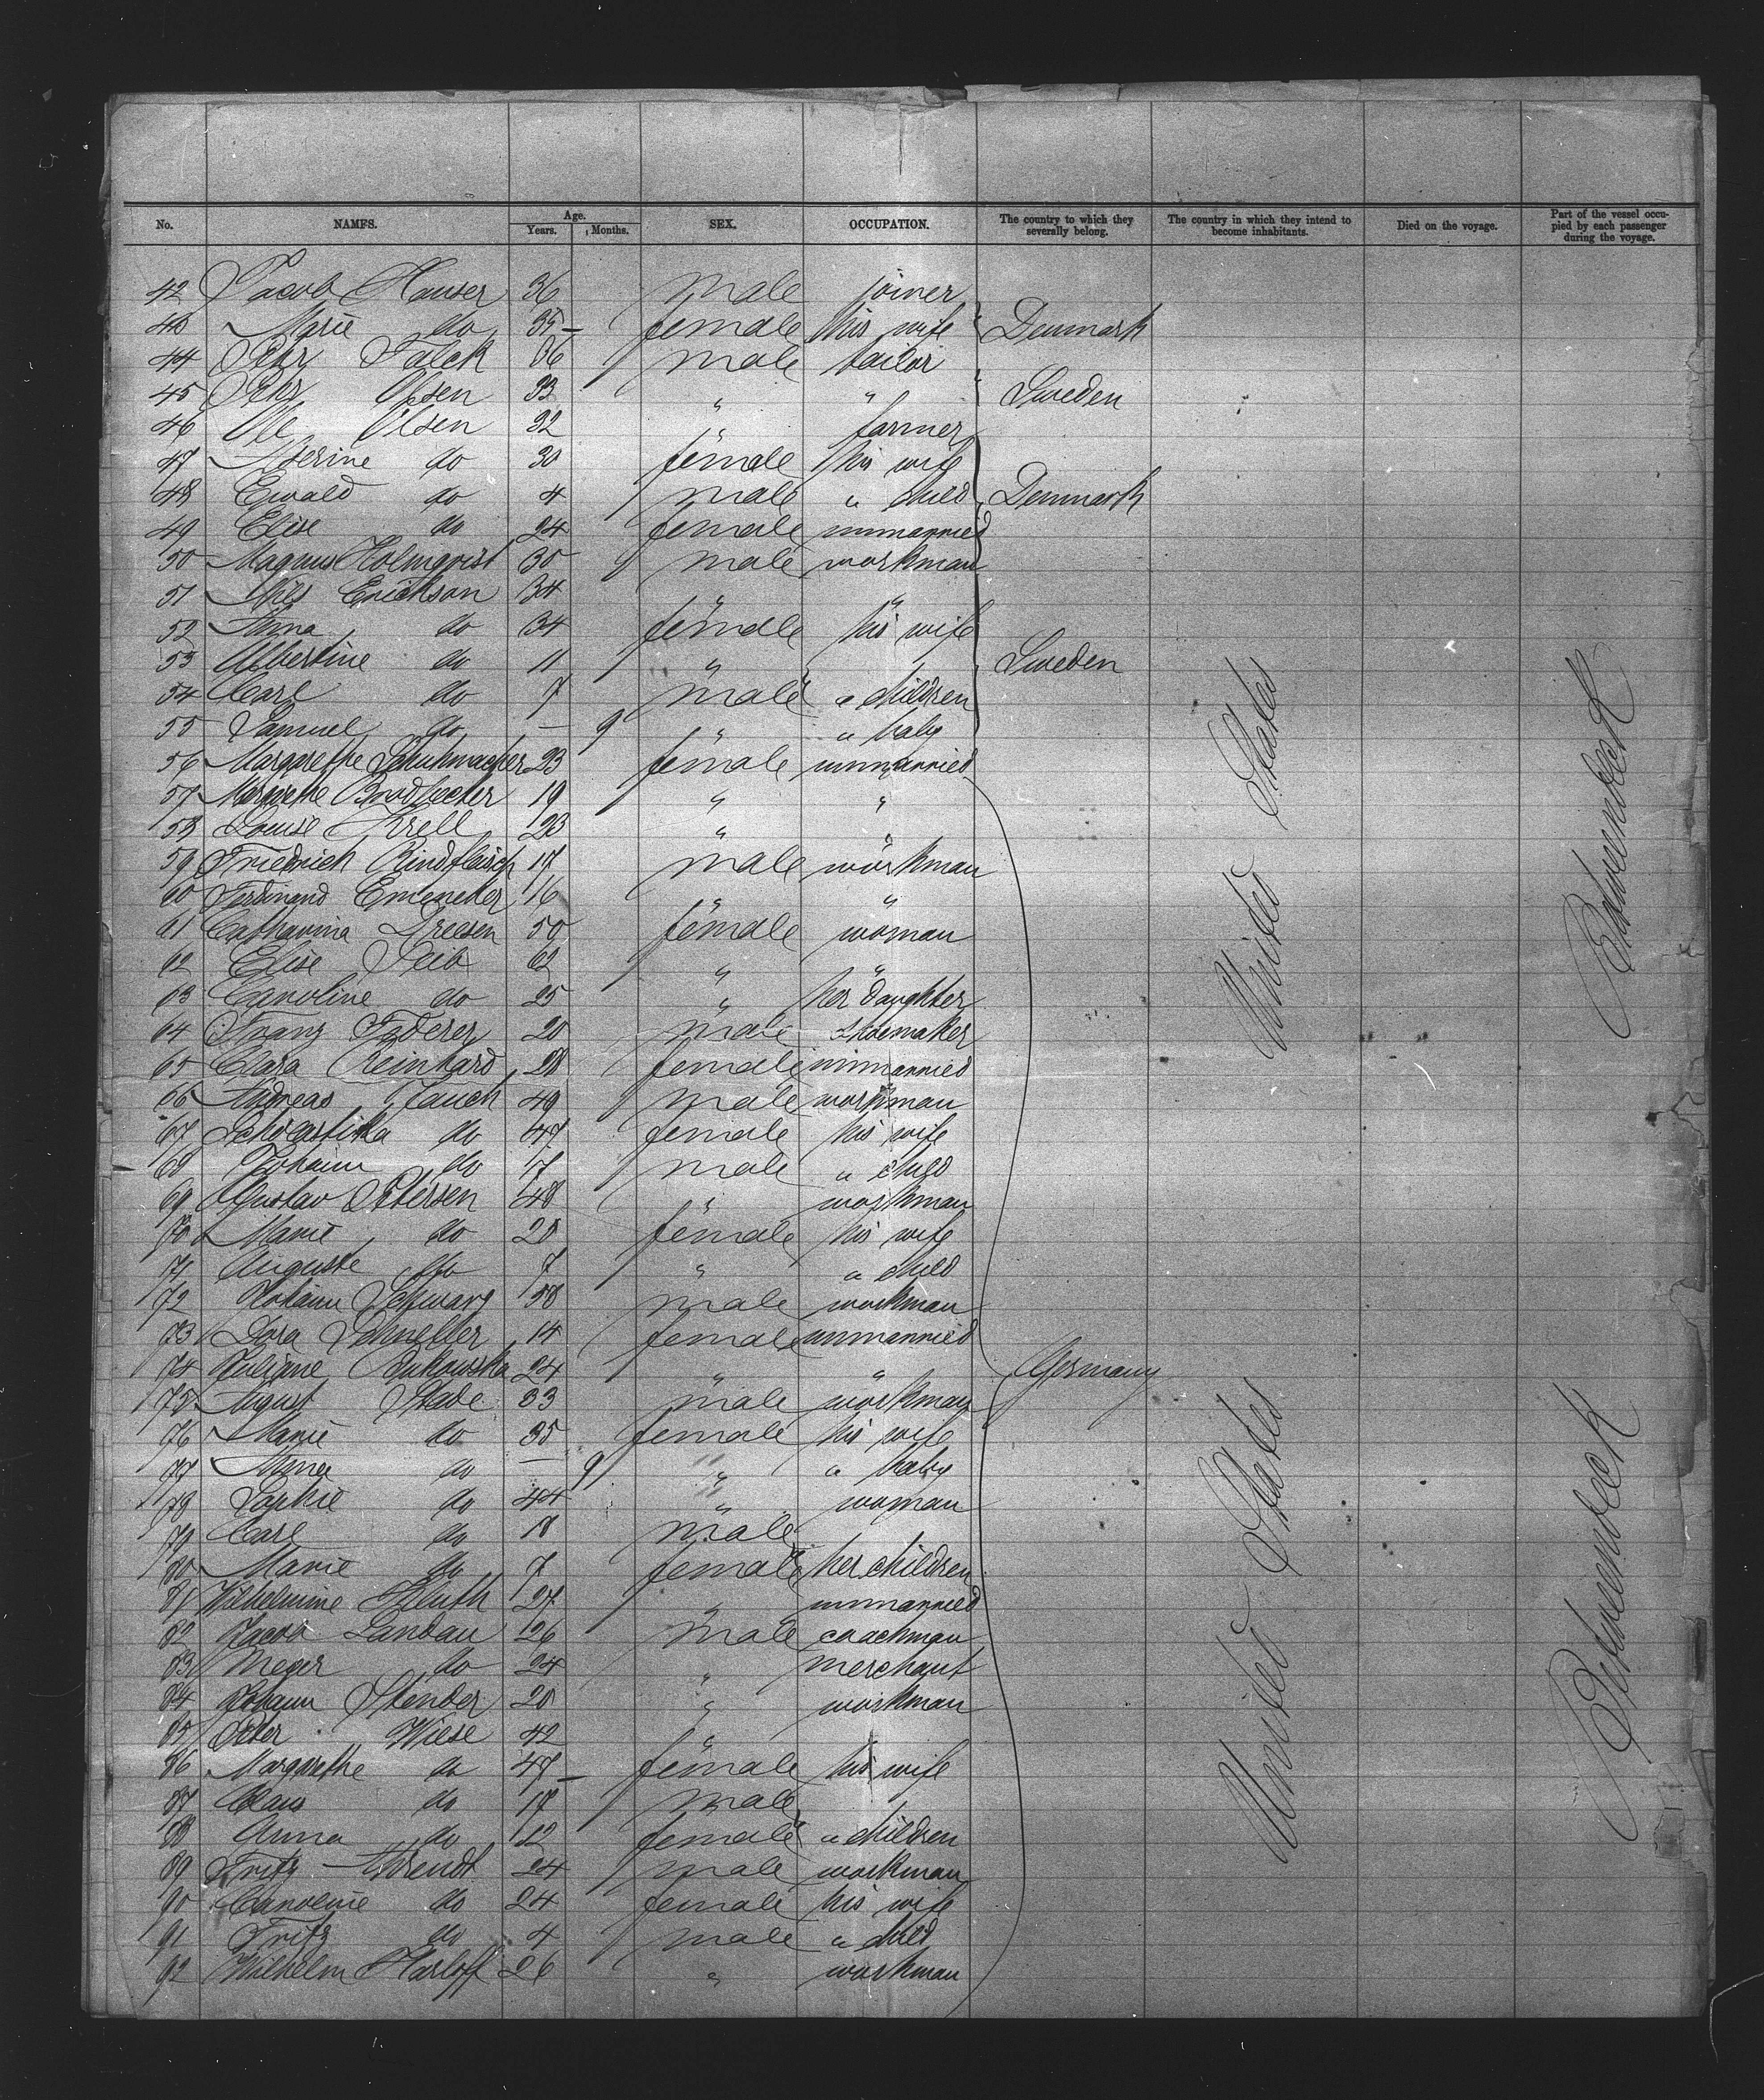 No. NAMES. Age. Years. Months. SEX. OCCUPATION. The country to which they severally belong. The country in which they intend to become inhabitants. Died on the voyage. Part of the vessel occupied by each passenger during the voyage.
42 Jacob Hauser 36 male joiner
43 Marie do 35 – female his wife Denmark
44 Pehr Falck 36 male tailor
45 Pehr Olsen 33 " " Sweden
46 Ole Olsen 32 " farmer
47 do 30 female his wife
48 Ewald do 4 male " child Denmark
49 Elise do 24 female unmarried
50 Magnus Holmqvist 35 male workman
51 Nils Erickson 34 " "
52 Anna do 34 female his wife
53 Albertine do 11 " Sweden
54 Carl do 7 male " children
55 Samuel do – 9 " " baby
56 Margarethe Schuhmacher 23 female unmarried
57 Brodbecker 19 " "
58 Louise Krell 23 " "
59 Friedrich Rindfleisch 17 male workman
60 Ferdinand 16 " "
61 Catharina Dreesen 50 female woman
62 Elise 62 " "
63 Caroline do 25 " her daughter
64 Franz Federer 20 male shoemaker
65 Clara Reinhard 28 female unmarried
66 Andreas 49 male workman
67 Scholastika do 47 female his wife
68 Johann do 7 male " child
69 Gustav Petersen 48 " workman
70 Marie do 28 female his wife
71 Auguste do 7 " " child
72 Johann Schwarz 58 male workman
73 Dora 14 female unmarried
74 Juliane 24 " " Germany
75 August Stade 33 male workman
76 Marie do 35 female his wife
77 Anna do – 9 " " baby
78 Sophie do 44 " woman
79 Carl do male
80 Marie do 7 female her children
81 Wilhelmine 27 " unmarried
82 Jacob Landau 26 male coachman
83 Meyer do 24 " merchant
84 Johann Stender 28 " workman
85 Peter Wiese 42 " "
86 Margarethe do 47 – female his wife
87 Claus do 17 male
88 Anna do 12 female " children
89 Fritz Ahrendt 24 male workman
90 Caroline do 24 female his wife
91 Fritz do 4 male " child
92 Wilhelm Harloff 26 " workman
United States
Betweendeck
United States
Betweendeck